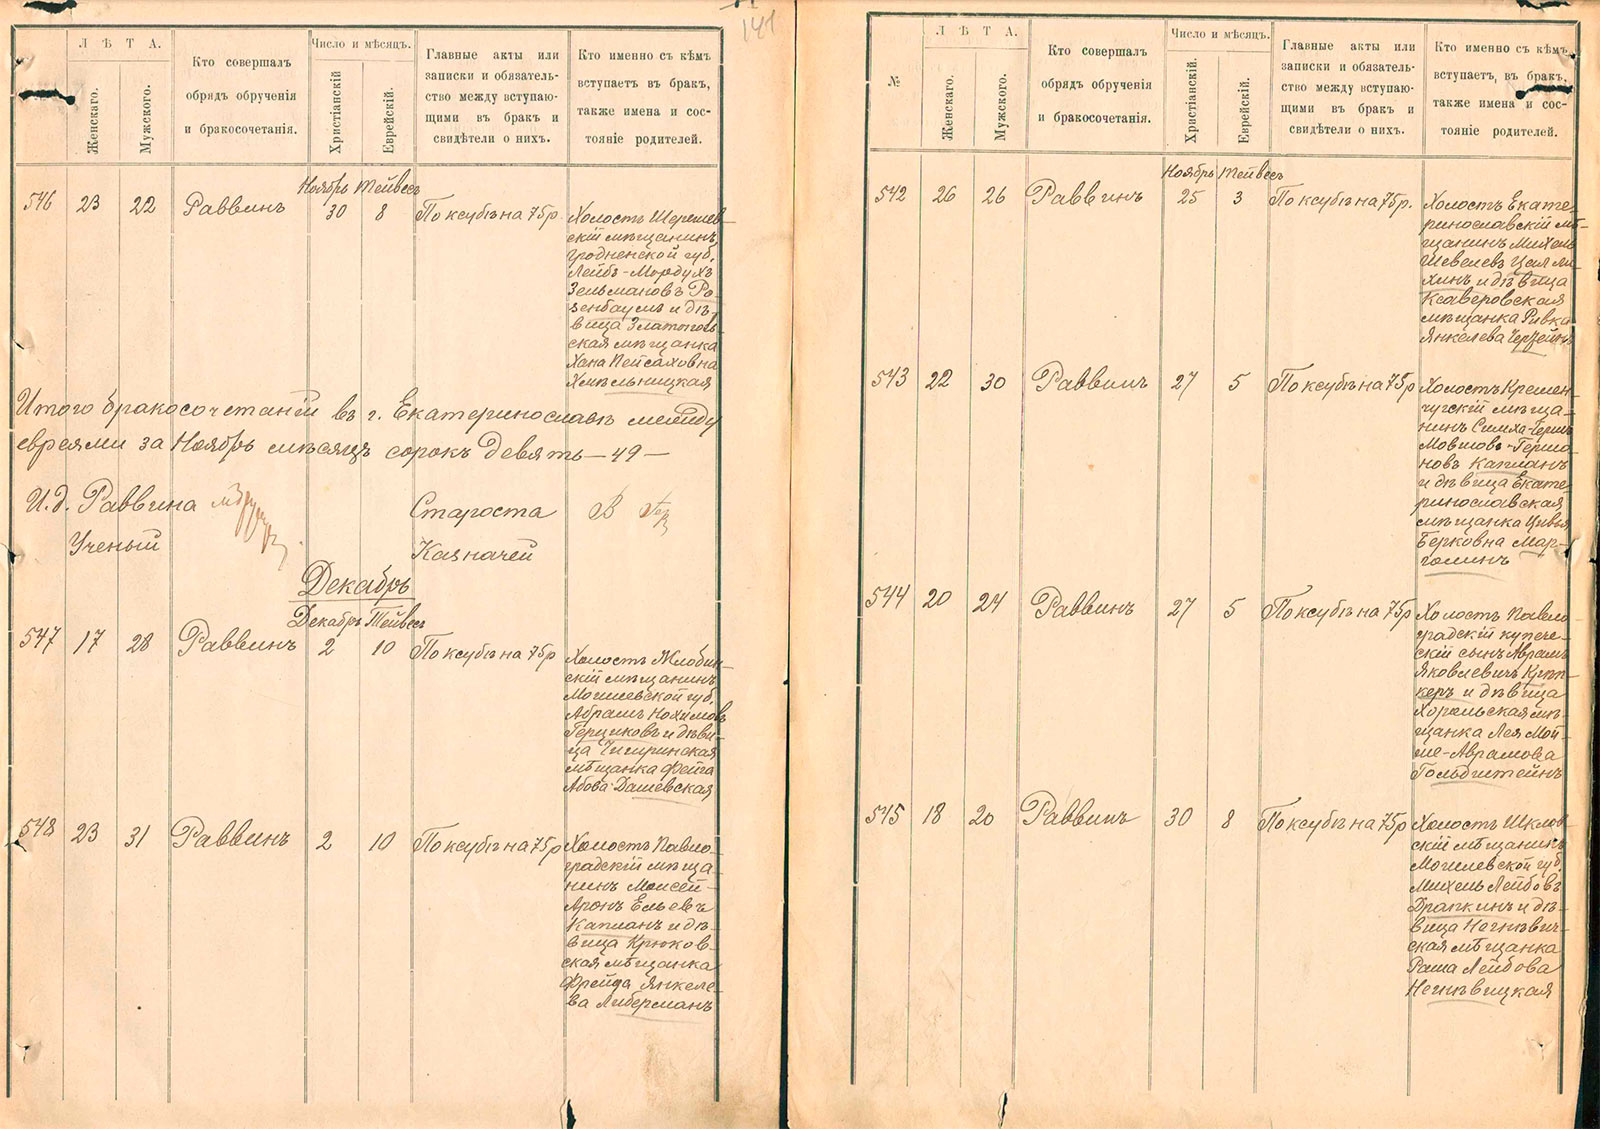 141
ЛѢТА.
Женскаго.
Мужского.
Кто совершалъ
обрядъ обрученія
и бракосочетанія.
Число и мѣсяцъ.
Христіанскій
Еврейскій.
Главные акты или
записки и обязатель-
ство между вступаю-
щими въ бракъ и
свидѣтели о нихъ.
Кто именно съ кѣмъ
вступаетъ въ бракъ,
также имена и сос-
тояніе родителей.
Ноябрь Тейвесъ
546 23 22 Раввинъ 30 8 По ксубѣ на 75 р.
Холостъ Шерешев-
скій мѣщанинъ
Гродненской губ.
Лейбъ-Мордухъ
Зельмановъ Ро-
зенбаумъ и дѣ-
вица Златополь-
ская мѣщанка
Хана Пейсаховна
Хмѣльницкая
Итого бракосочетаній въ г. Екатеринославѣ между
евреями за Ноябрь мѣсяцъ сорокъ девять — 49 —
И.д. Раввина
Староста
Ученый
Казначей
Декабрь
Декабрь Тейвесъ
547 17 28 Раввинъ 2 10 По ксубѣ на 75 р
Холостъ Жлобин-
скій мѣщанинъ
Могилевской губ.
Абрамъ Нохимовъ
Герциковъ и дѣви-
ца Чигиринская
мѣщанка Фейга
Абова Дашевская
548 23 31 Раввинъ 2 10 По ксубѣ на 75 р
Холостъ Павло-
градскій мѣща-
нинъ Моисей-
Аронъ Ельевъ
Капланъ и дѣ-
вица Крюков-
ская мѣщанка
Фрейда Янкеле-
ва Либерманъ
№
ЛѢТА.
Женскаго.
Мужского.
Кто совершалъ
обрядъ обрученія
и бракосочетанія.
Число и мѣсяцъ.
Христіанскій.
Еврейскій.
Главные акты или
записки и обязатель-
ство между вступаю-
щими въ бракъ и
свидѣтели о нихъ.
Кто именно съ кѣмъ
вступаетъ, въ бракъ,
также имена и сос-
тояніе родителей.
Ноябрь Тейвесъ
542 26 26 Раввинъ 25 3 По ксубѣ на 75 р.
Холостъ Екате-
ринославскій мѣ-
щанинъ Михель
Шевелевъ
и дѣвица
Ксаверовская
мѣщанка Ривка
Янкелева
543 22 30 Раввинъ 27 5 По ксубѣ на 75 р
Холостъ Кремен-
чугскій мѣща-
нинъ Симха-Герш
Мовшовъ-Гершо-
новъ Капланъ
и дѣвица Екате-
ринославская
мѣщанка Цивья
Берковна Мар-
голинъ
544 20 24 Раввинъ 27 5 По ксубѣ на 75 р
Холостъ Павло-
градскій купече-
скій сынъ Аврамъ
Яковлевичъ
и дѣвица
Хорольская мѣ-
щанка Лея Мой-
ше-Аврамова
Гольдштейнъ
545 18 20 Раввинъ 30 8 По ксубѣ на 75 р
Холостъ Шклов-
скій мѣщанинъ
Могилевской губ.
Михель Лейбовъ
Драпкинъ и дѣ-
вица Негнѣвич-
ская мѣщанка
Раша Лейбова
Негнѣвицкая